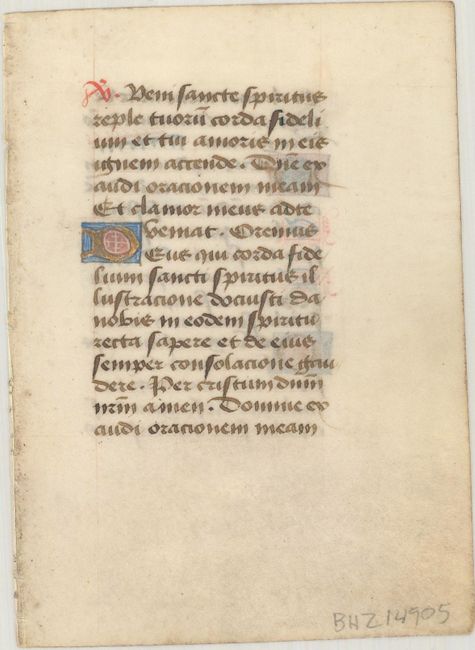 A. Veni sancte spiritus
reple tuorū corda fideli
um et tui amoris in eis
ignem accende. Dñe ex
audi oracionem meam
Et clamor meus ad te
veniat. Oremus
DEus qui corda fide
lium sancti spiritus il
lustracione docuisti da
nobis in eodem spiritu
recta sapere et de eius
semper consolacione gau
dere. Per cristum dñm
nrm̄ amen. Domine ex
audi oracionem meam
BHZ14905